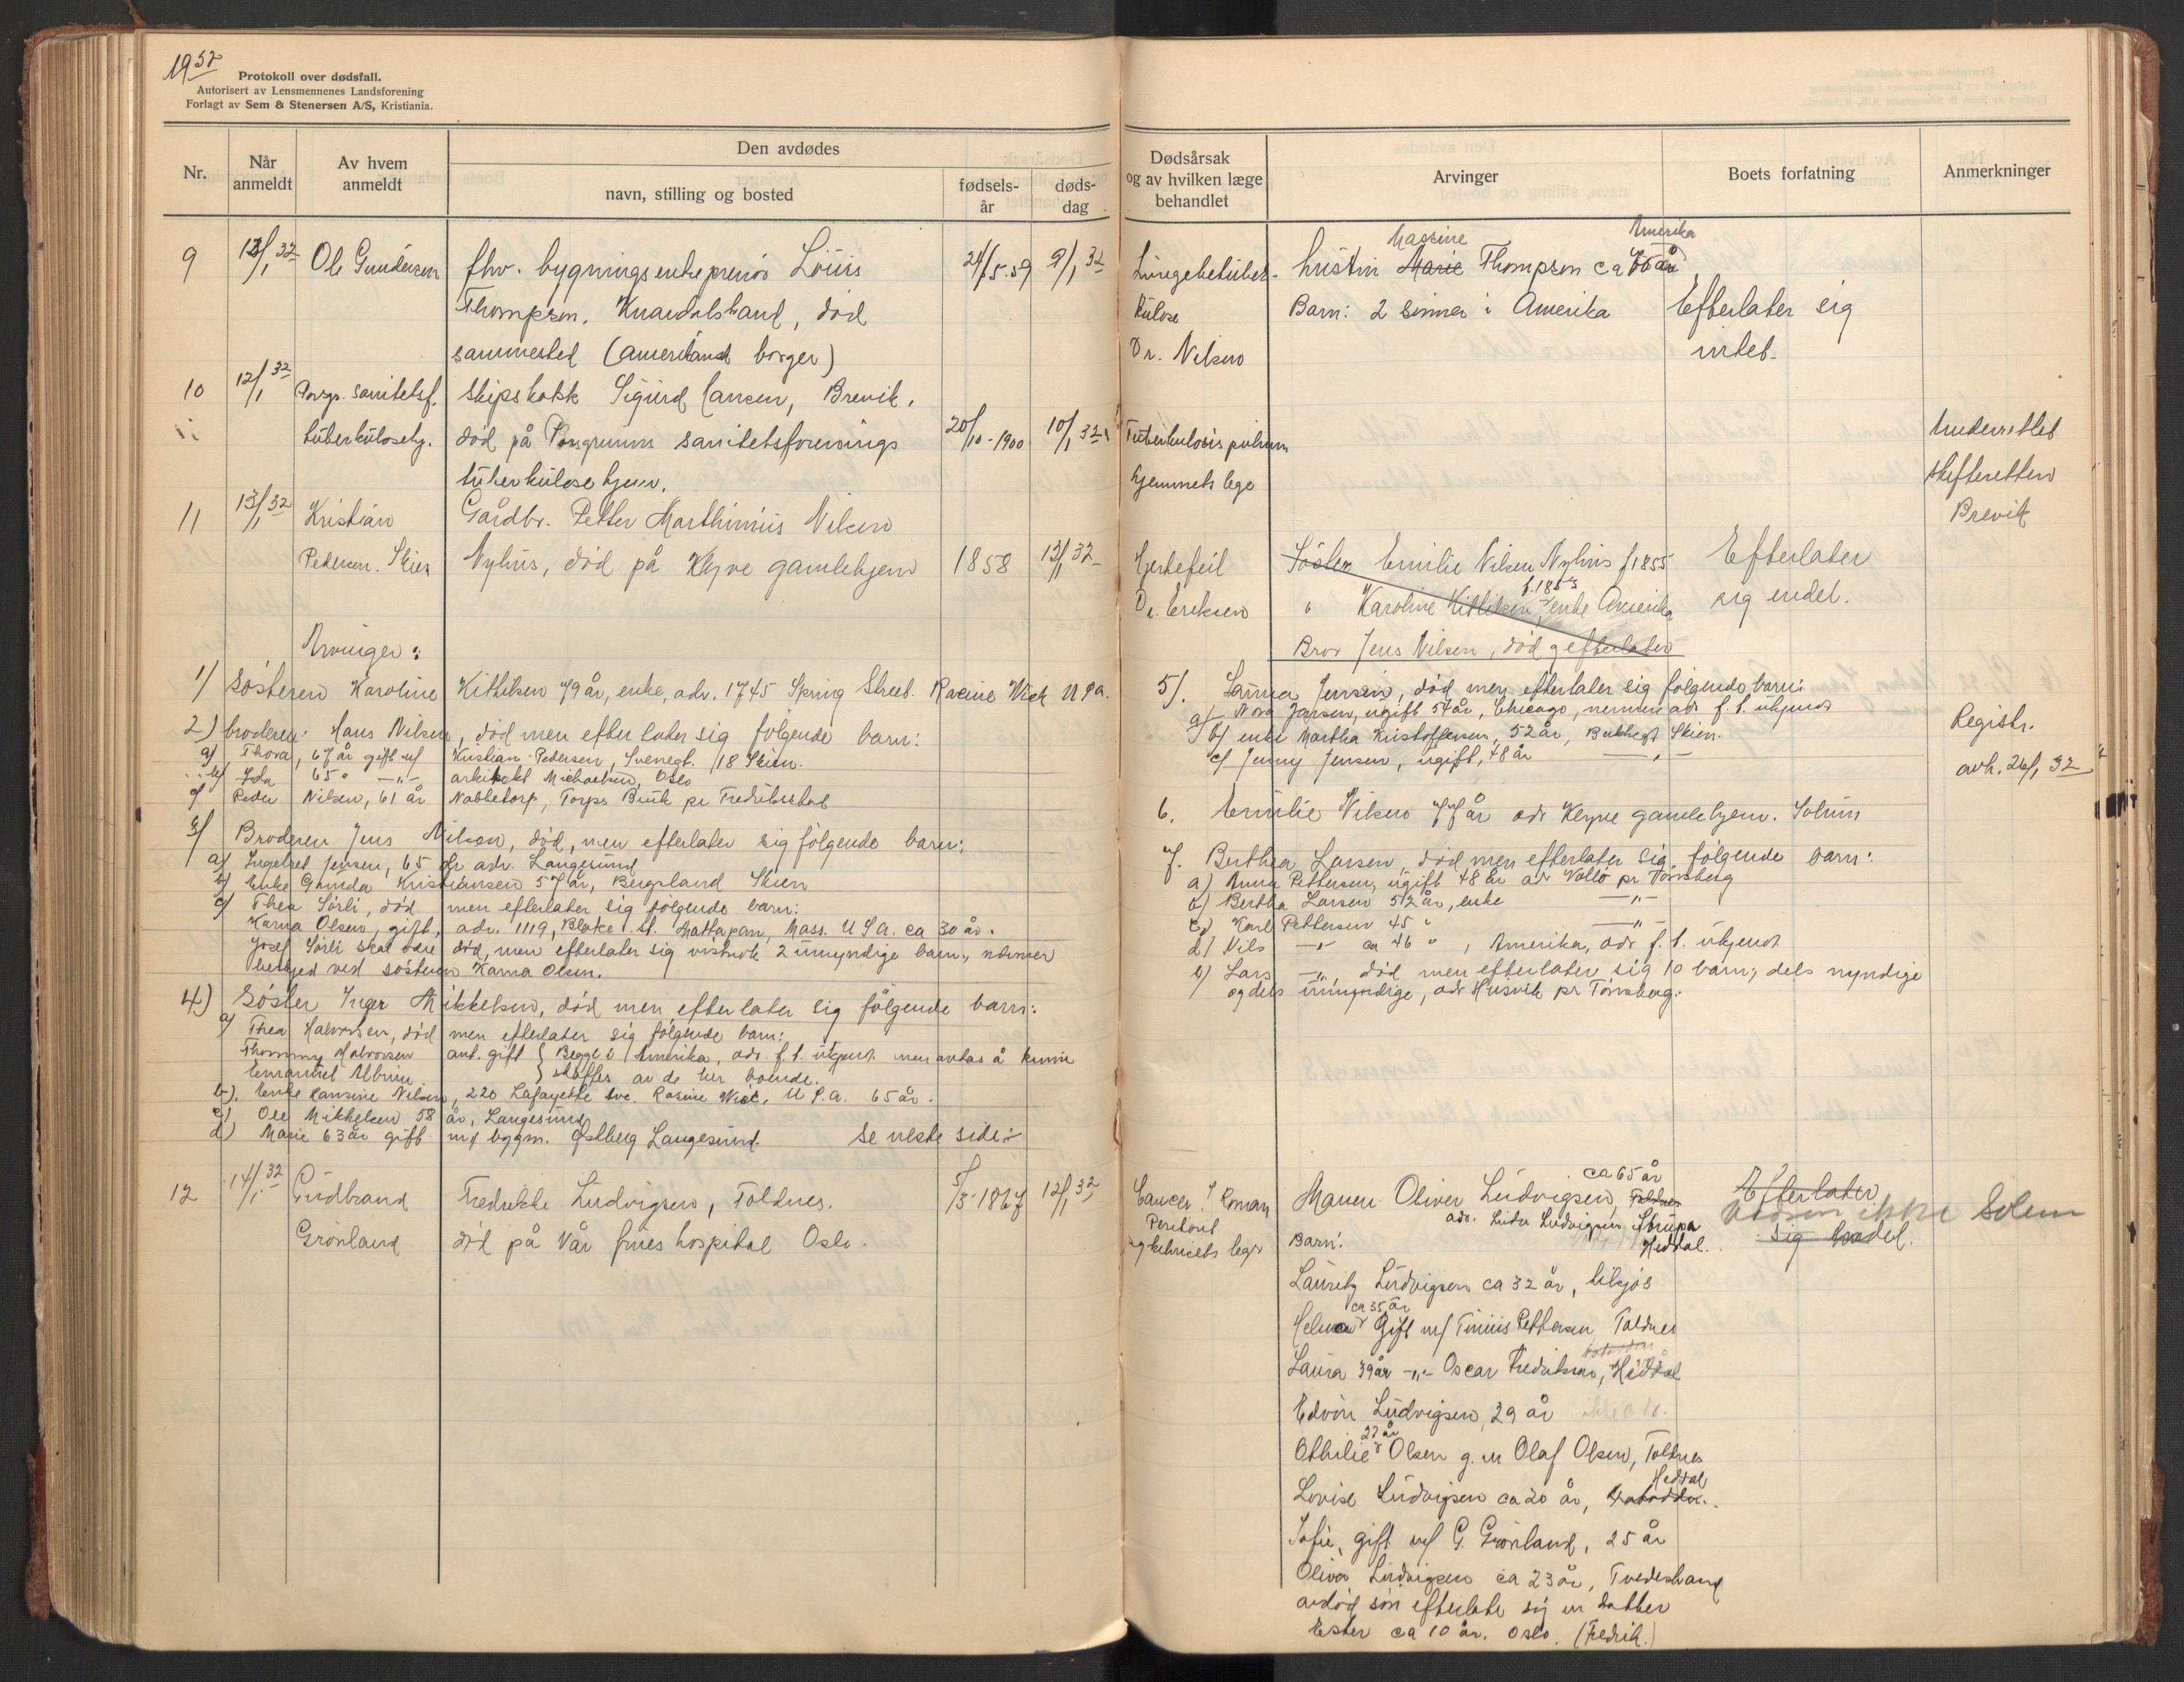 1932
Protokoll over dødsfall.
Autorisert av Lensmennenes Landsforening
Forlagt av Sem & Stenersen A/S, Kristiania.
Nr.
Når anmeldt
Av hvem anmeldt
Den avdødes
navn, stilling og bosted
fødselsår
dødsdag
Dødsårsak og av hvilken læge behandlet
Arvinger
Boets forfatning
Anmerkninger
9 12/1 32 Ole Gundersen fhv. bygningsentreprenør Louis 21/5-59 9/1 32
Thompson, Knardalstrand, død
sammested (amerikansk borger)
Lungetuber-
kulose
Dr. Nilsen
Hustru Marie Thompson ca
Amerika
Barn: 2 sønner i Amerika
Efterlater sig
intet.
10 12/1 32 Porsgr. sanitetsf. skipskokk Sigurd Hansen, Brevik,
tuberkulosehj. død på Porsgrunns sanitetsforenings 20/10-1900 10/1 32
tuberkulosehjem.
Tuberkulosis pulmon
hjemmets lege
Underrettet
skifteretten
Brevik
11 13/1 32 Kristian Gårdbr. Petter Marthinius Nilsen
Pedersen. Skien Nyhus, død på Klyve gamlehjem 1858 13/1 32
Hjertefeil
Dr. Eriksen
Søster Emilie Nilsen Nyhus f 1855
f. 1853
" Karoline Kittilsen, enke Amerika
Bror Jens Nilsen, død, efterlater
Efterlater
sig endel.
Arvinger:
1) Søsteren Karoline Kittilsen 79 år, enke, adr. 1745 Spring Street. Racine Wick USA.
2) broderen: Hans Nilsen, død men efterlater sig følgende barn:
a) Thora, 67 år gift m/ Kristian Pedersen, Svenegt. 18 Skien.
b) Ida 65 " -"- arkitekt Michaelsen, Oslo
c) Peder Nilsen, 61 år Nabbetorp, Torps Bruk pr Fredrikstad
3) Broderen Jens Nilsen, død, men efterlater sig følgende barn:
a) Ingebret Jensen, 65 år adr. Langesund
b) Enke Gunda Kristiansen 57 år, Bergsland Skien
c) Thea Sørli, død men efterlater sig følgende barn:
Karna Olsen, gift, adr. 1119, Blake St. Mattapan, Mass. USA. ca 30 år.
Josef Sørli skal være død, men efterlater sig visstnok 2 umyndige barn, nærmer
beskjed ved søsteren Karna Olsen.
4) Søster Inger Mikkelsen, død men efterlater sig følgende barn:
a) Thea Halvorsen, død men efterlater sig følgende barn:
Thommy Halvorsen ant. gift } Begge i Amerika, adr. f. t. ukjent men antas å kunne
Emanuel Albin } skaffes av de her boende.
b). Enke Hansine Nilsen, 220 Lafayette ave. Rasine Wick, USA. 65 år.
c) Ole Mikkelsen 58 år, Langesund
d) Marie 63 år gift m/ bygm. Østberg Langesund. Se neste side:-
5). Laura Jensen, død men efterlater sig følgende barn:
a) Nora Jensen, ugift 54 år, Chicago, nermere adr. f. t. ukjent
b) enke Martha Kristoffersen, 52 år, Skien.
c) Jenny Jensen, ugift, 48 år -"-
6. Emilie Nilsen 77 år adr Klyve gamlehjem. Solum
7. Berthea Larsen, død men efterlater sig følgende barn:
a) Anna Pettersen, ugift 48 år adr Vallø pr Tønsberg
b) Bertha Larsen 52 år, enke -"-
c) Karl Pettersen 45 " -"-
d) Nils -"- ca 46 ", Amerika, adr f. t. ukjent
e) Lars -"-, død men efterlater sig 10 barn, dels myndige
og dels umyndige, adr Husvik pr Tønsberg.
Registr.
avh. 26/1 32
12 14/1 32 Gudbrand Fredrikke Ludvigsen, Toldnes. 5/3-1867 12/1 32
Grønland død på Vår frues hospital Oslo.
Cancer
Peritonit
sykehusets lege
ca 65 år
Mann Oliver Ludvigsen, Toldnes
adr. Ludvigsen Strupa
Heddal.
Barn:
Efterlater
sig endel.
ikke Solum
Lauritz Ludvigsen ca 32 år,
ca 35 år
Helma Gift m/ Tinius Pettersen Toldnes
Laura 39 år -"- Oscar Fredriksen, Heddal
Edvin Ludvigsen, 29 år
27 år
Othilie Olsen g. m Olaf Olsen, Toldnes
Heddal
Lovise Ludvigsen ca 20 år, Notodden.
Sofie, gift m/ G. Grønland, 25 år
Oliver Ludvigsen ca 23 år, Tvedestrand
avdød sønn efterlate sig en datter
Ester ca 10 år. Oslo. (Fredrik.)